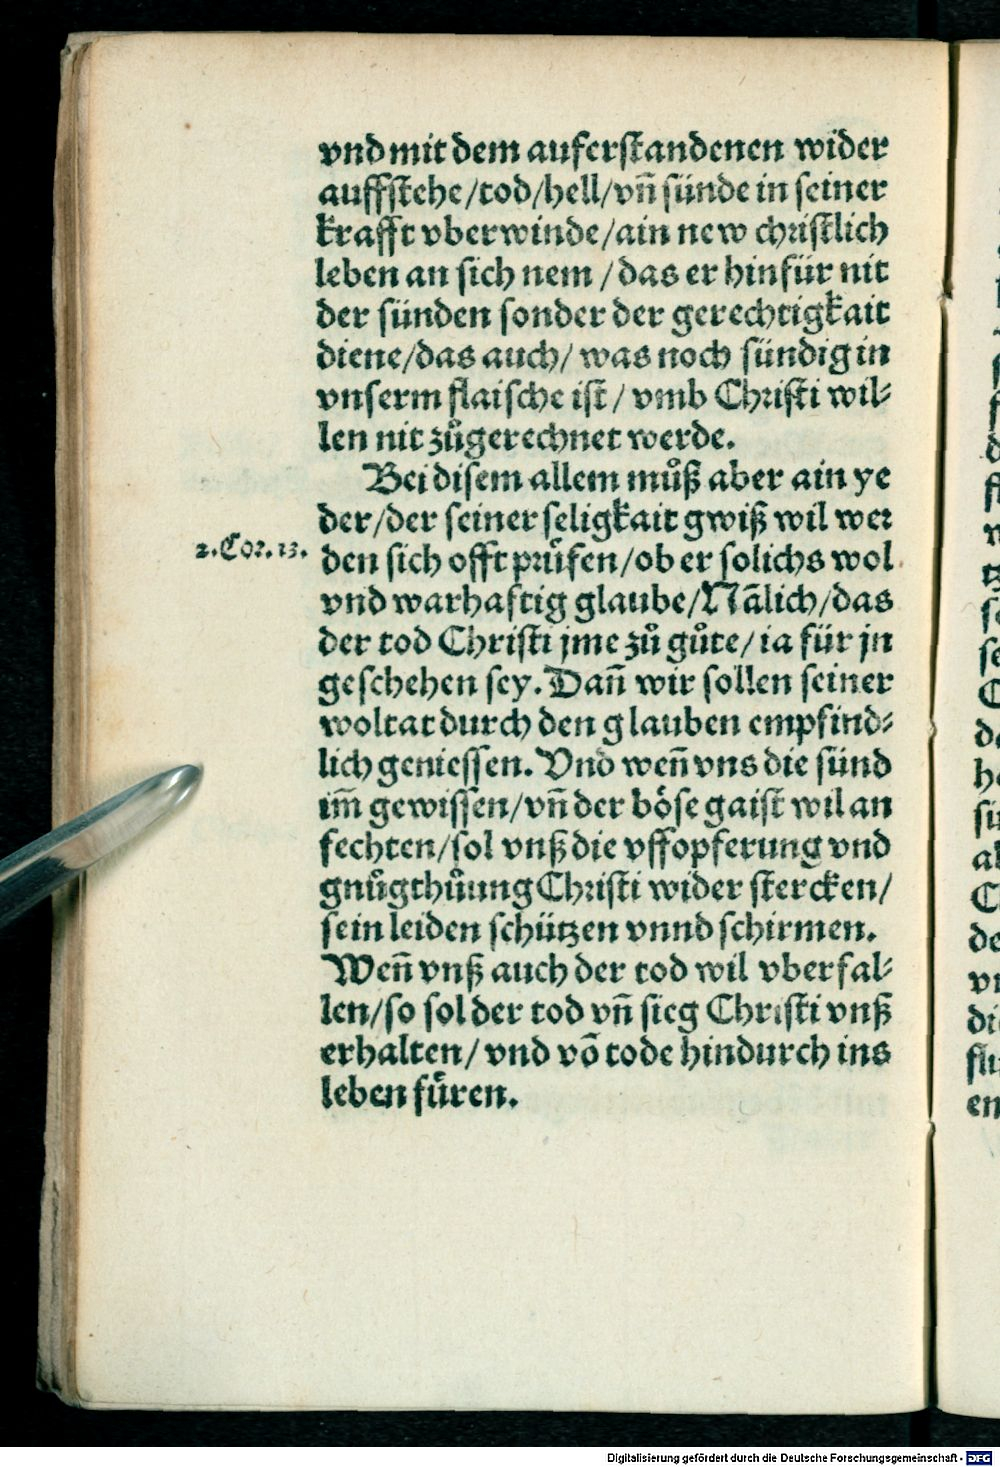 vnd mit dem auferstandenen wider
auffstehe/tod/hell/vn̄ sünde in seiner
krafft vberwinde/ain new christlich
leben an sich nem/das er hinfür nit
der sünden sonder der gerechtigkait
diene/das auch/was noch sündig in
vnserm flaische ist/vmb Christi wil⸗
len nit zůgerechnet werde.
Bei disem allem můß aber ain ye
der/der seiner seligkait gwiß wil wer
2. Cor. 13.
den sich offt prüfen/ob er solichs wol
vnd warhaftig glaube/Nālich/das
der tod Christi jme zů gůte/ia für jn
geschehen sey. Dan̄ wir sollen seiner
woltat durch den glauben empfind⸗
lich geniessen. Vnd wen̄ vns die sünd
im̄ gewissen/vn̄ der böse gaist wil an
fechten/sol vnß die vffopferung vnd
gnůgthůung Christi wider stercken/
sein leiden schützen vnnd schirmen.
Wen̄ vnß auch der tod wil vberfal⸗
len/so sol der tod vn̄ sieg Christi vnß
erhalten/vnd vō tode hindurch ins
leben füren.
Digitalisierung gefördert durch die Deutsche Forschungsgemeinschaft - DFG